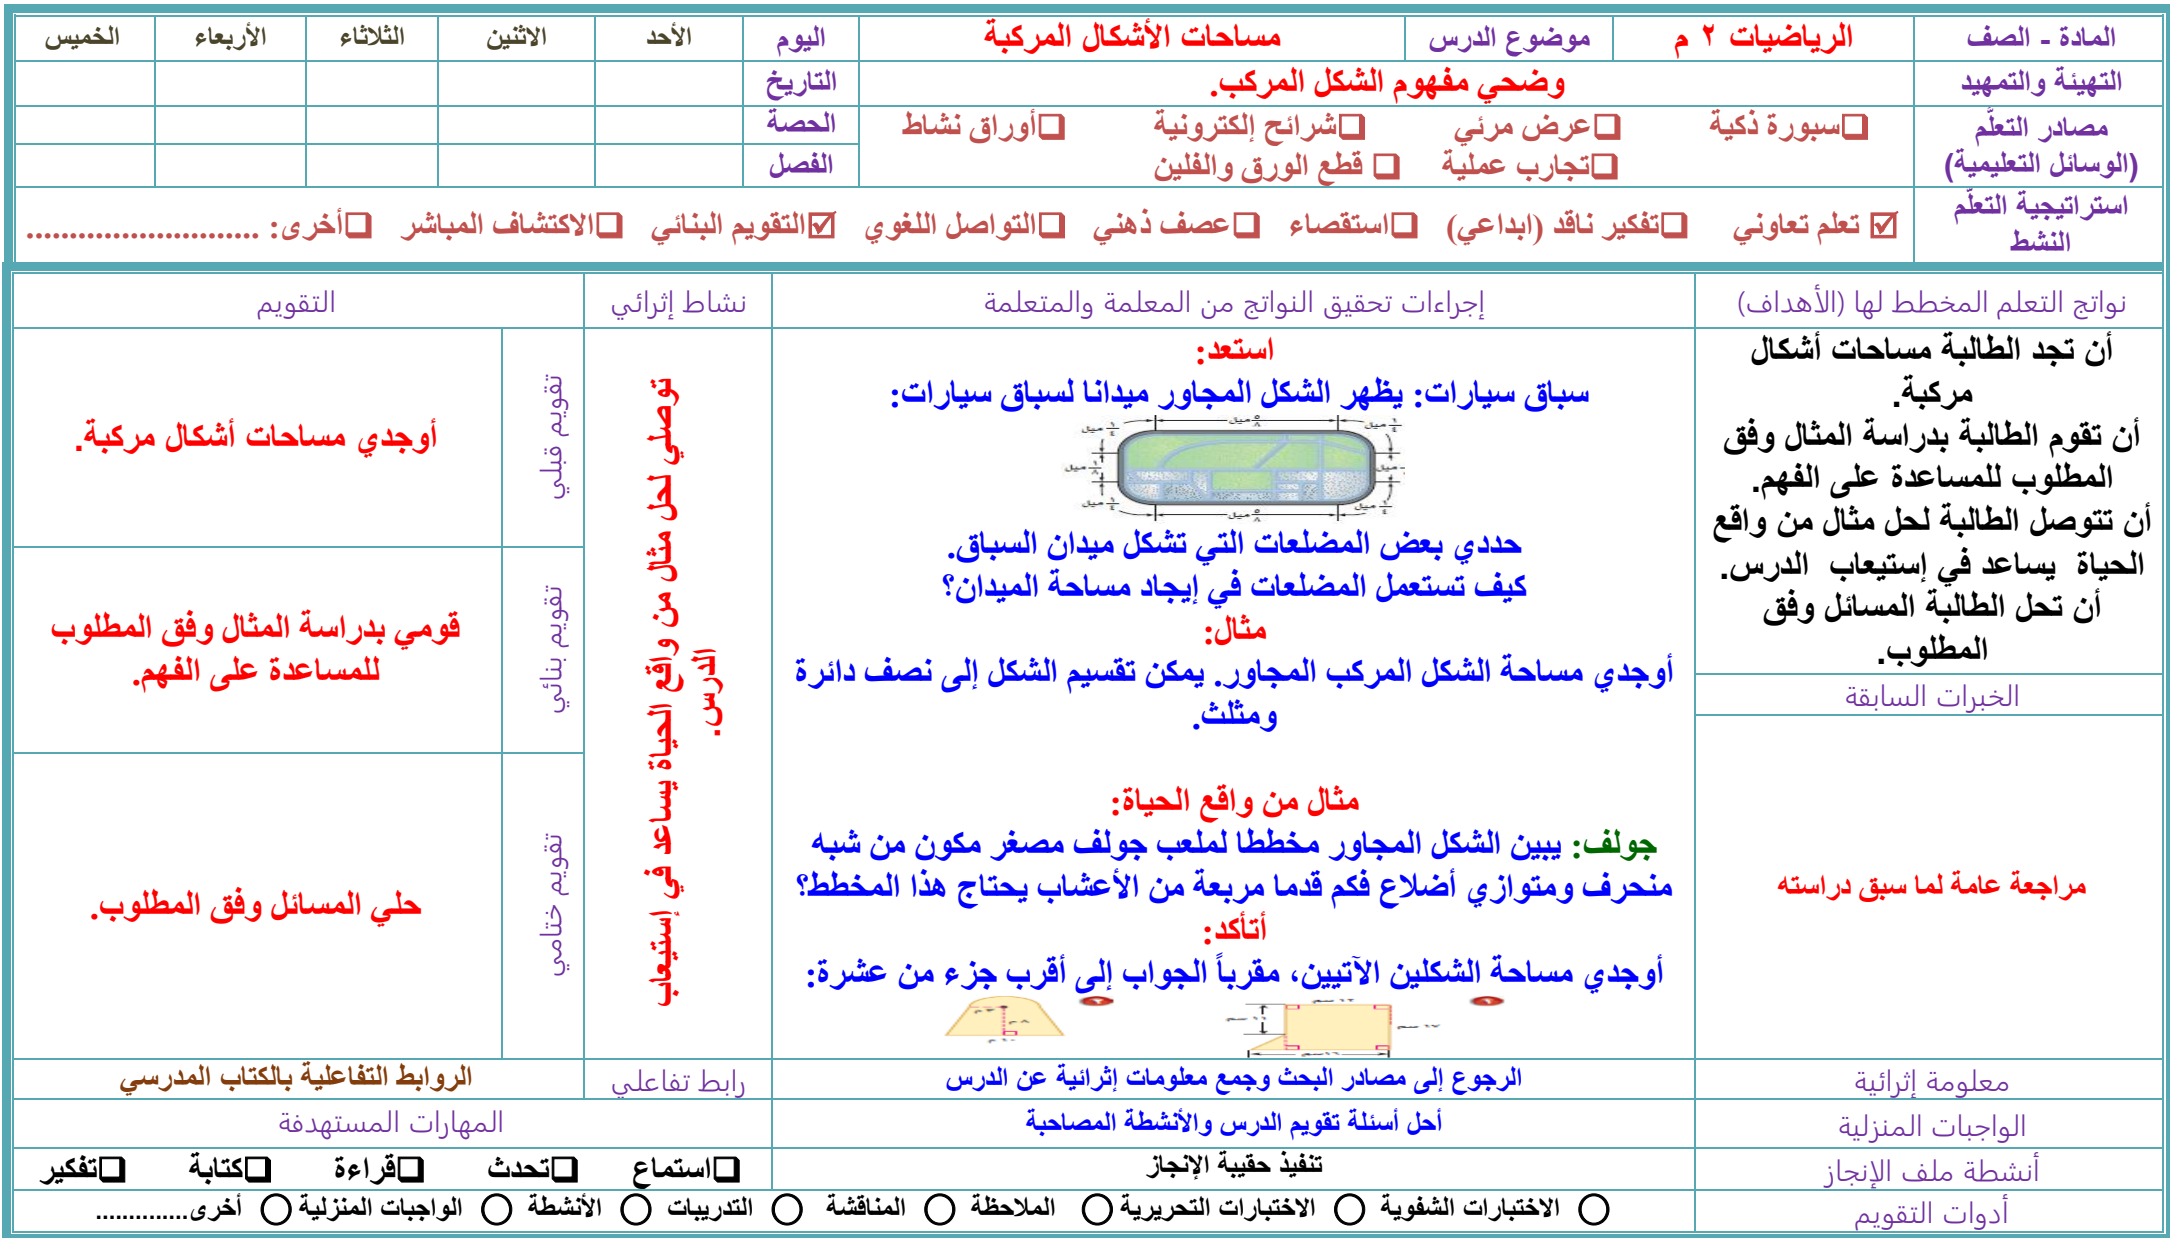 المادة - الصف
الرياضيات ٢ م
موضوع الدرس
مساحات الأشكال المركبة
اليوم
الأحد
الاثنين
الثلاثاء
الأربعاء
الخميس
التهيئة والتمهيد
وضحي مفهوم الشكل المركب.
التاريخ
مصادر التعلّم
(الوسائل التعليمية)
❑سبورة ذكية ❑عرض مرئي ❑شرائح إلكترونية ❑أوراق نشاط
❑تجارب عملية ❑ قطع الورق والفلين
الحصة
الفصل
استراتيجية التعلّم
النشط
☑ تعلم تعاوني ❑تفكير ناقد (ابداعي) ❑استقصاء ❑عصف ذهني ❑التواصل اللغوي ☑التقويم البنائي ❑الاكتشاف المباشر ❑أخرى: ...........................
نواتج التعلم المخطط لها (الأهداف)
إجراءات تحقيق النواتج من المعلمة والمتعلمة
نشاط إثرائي
التقويم
أن تجد الطالبة مساحات أشكال
مركبة.
أن تقوم الطالبة بدراسة المثال وفق
المطلوب للمساعدة على الفهم.
أن تتوصل الطالبة لحل مثال من واقع
الحياة يساعد في إستيعاب الدرس.
أن تحل الطالبة المسائل وفق
المطلوب.
الخبرات السابقة
مراجعة عامة لما سبق دراسته
استعد:
سباق سيارات: يظهر الشكل المجاور ميدانا لسباق سيارات:
حددي بعض المضلعات التي تشكل ميدان السباق.
كيف تستعمل المضلعات في إيجاد مساحة الميدان؟
مثال:
أوجدي مساحة الشكل المركب المجاور. يمكن تقسيم الشكل إلى نصف دائرة
ومثلث.
مثال من واقع الحياة:
جولف: يبين الشكل المجاور مخططا لملعب جولف مصغر مكون من شبه
منحرف ومتوازي أضلاع فكم قدما مربعة من الأعشاب يحتاج هذا المخطط؟
أتأكد:
أوجدي مساحة الشكلين الآتيين، مقرباً الجواب إلى أقرب جزء من عشرة:
توصلي لحل مثال من واقع الحياة يساعد في إستيعاب
الدرس.
تقويم قبلي
أوجدي مساحات أشكال مركبة.
تقويم بنائي
قومي بدراسة المثال وفق المطلوب
للمساعدة على الفهم.
تقويم ختامي
حلي المسائل وفق المطلوب.
معلومة إثرائية
الرجوع إلى مصادر البحث وجمع معلومات إثرائية عن الدرس
رابط تفاعلي
الروابط التفاعلية بالكتاب المدرسي
الواجبات المنزلية
أحل أسئلة تقويم الدرس والأنشطة المصاحبة
المهارات المستهدفة
أنشطة ملف الإنجاز
تنفيذ حقيبة الإنجاز
❑استماع ❑تحدث ❑قراءة ❑كتابة ❑تفكير
أدوات التقويم
◯ الاختبارات الشفوية ◯ الاختبارات التحريرية ◯ الملاحظة ◯ المناقشة ◯ التدريبات ◯ الأنشطة ◯ الواجبات المنزلية ◯ أخرى..............